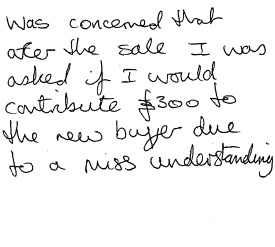 Was concerned that
ater the sale I was
asked if I would
contribute £300 to
the new buyer due
to a miss understanding